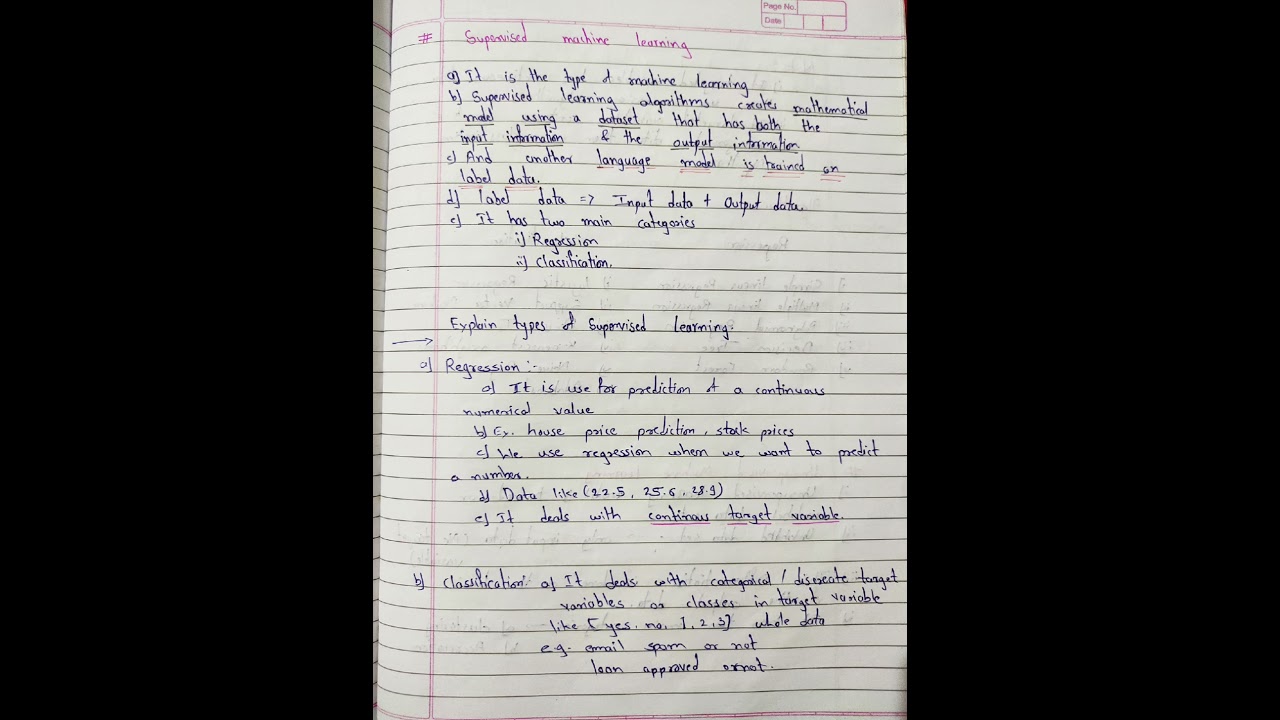 Page No.
Date
# Supervised machine learning
a) It is the type of machine learning
b) Supervised learning algorithms creates mathematical
model using a dataset that has both the
input information & the output information
c) And another language model is trained on
label data.
d) label data => Input data + Output data.
e) It has two main categories
i) Regression
ii) Classification.
Explain types of Supervised learning.
a) Regression :-
a) It is use for prediction of a continuous
numerical value
b) Ex. house price prediction, stock prices
c) We use regression when we want to predict
a number.
d) Data like (22.5, 25.6, 28.9)
e) It deals with continous target variable.
b) Classification: a) It deals with categorical / discreate target
variables or classes in target variable
like [yes, no, 1, 2, 3] whole data
e.g. email spam or not
loan approved or not.